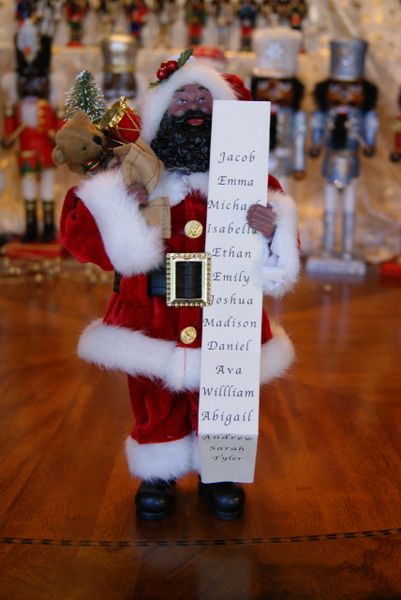 Jacob
Emma
Michael
Isabella
Ethan
Emily
Joshua
Madison
Daniel
Ava
Willliam
Abigail
Andrew
Sarah
Tyler